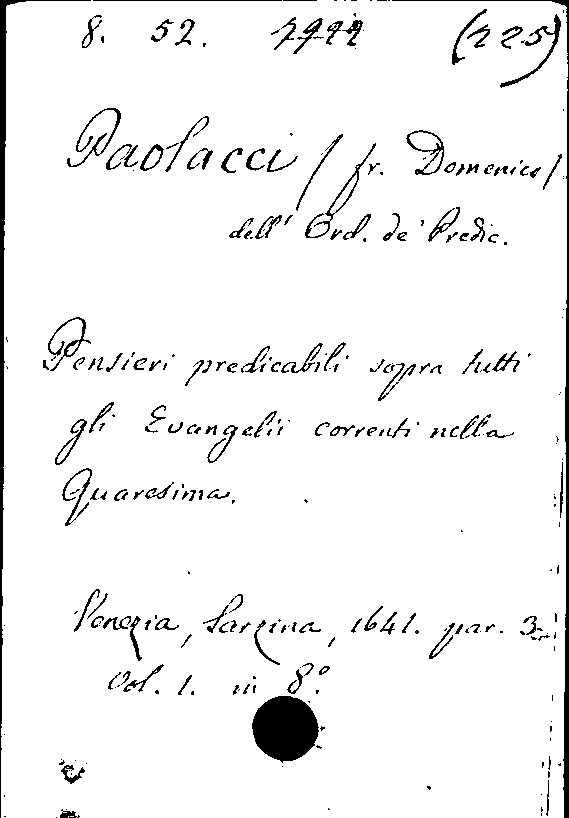 8. 52. (225)
Paolacci / fr. Domenico /
dell' Ord. de' Predic.
Pensieri predicabili sopra tutti
gli Evangelii correnti nella
Quaresima.
Venezia, Sarzina, 1641. par. 3
Vol. 1. in 8º.